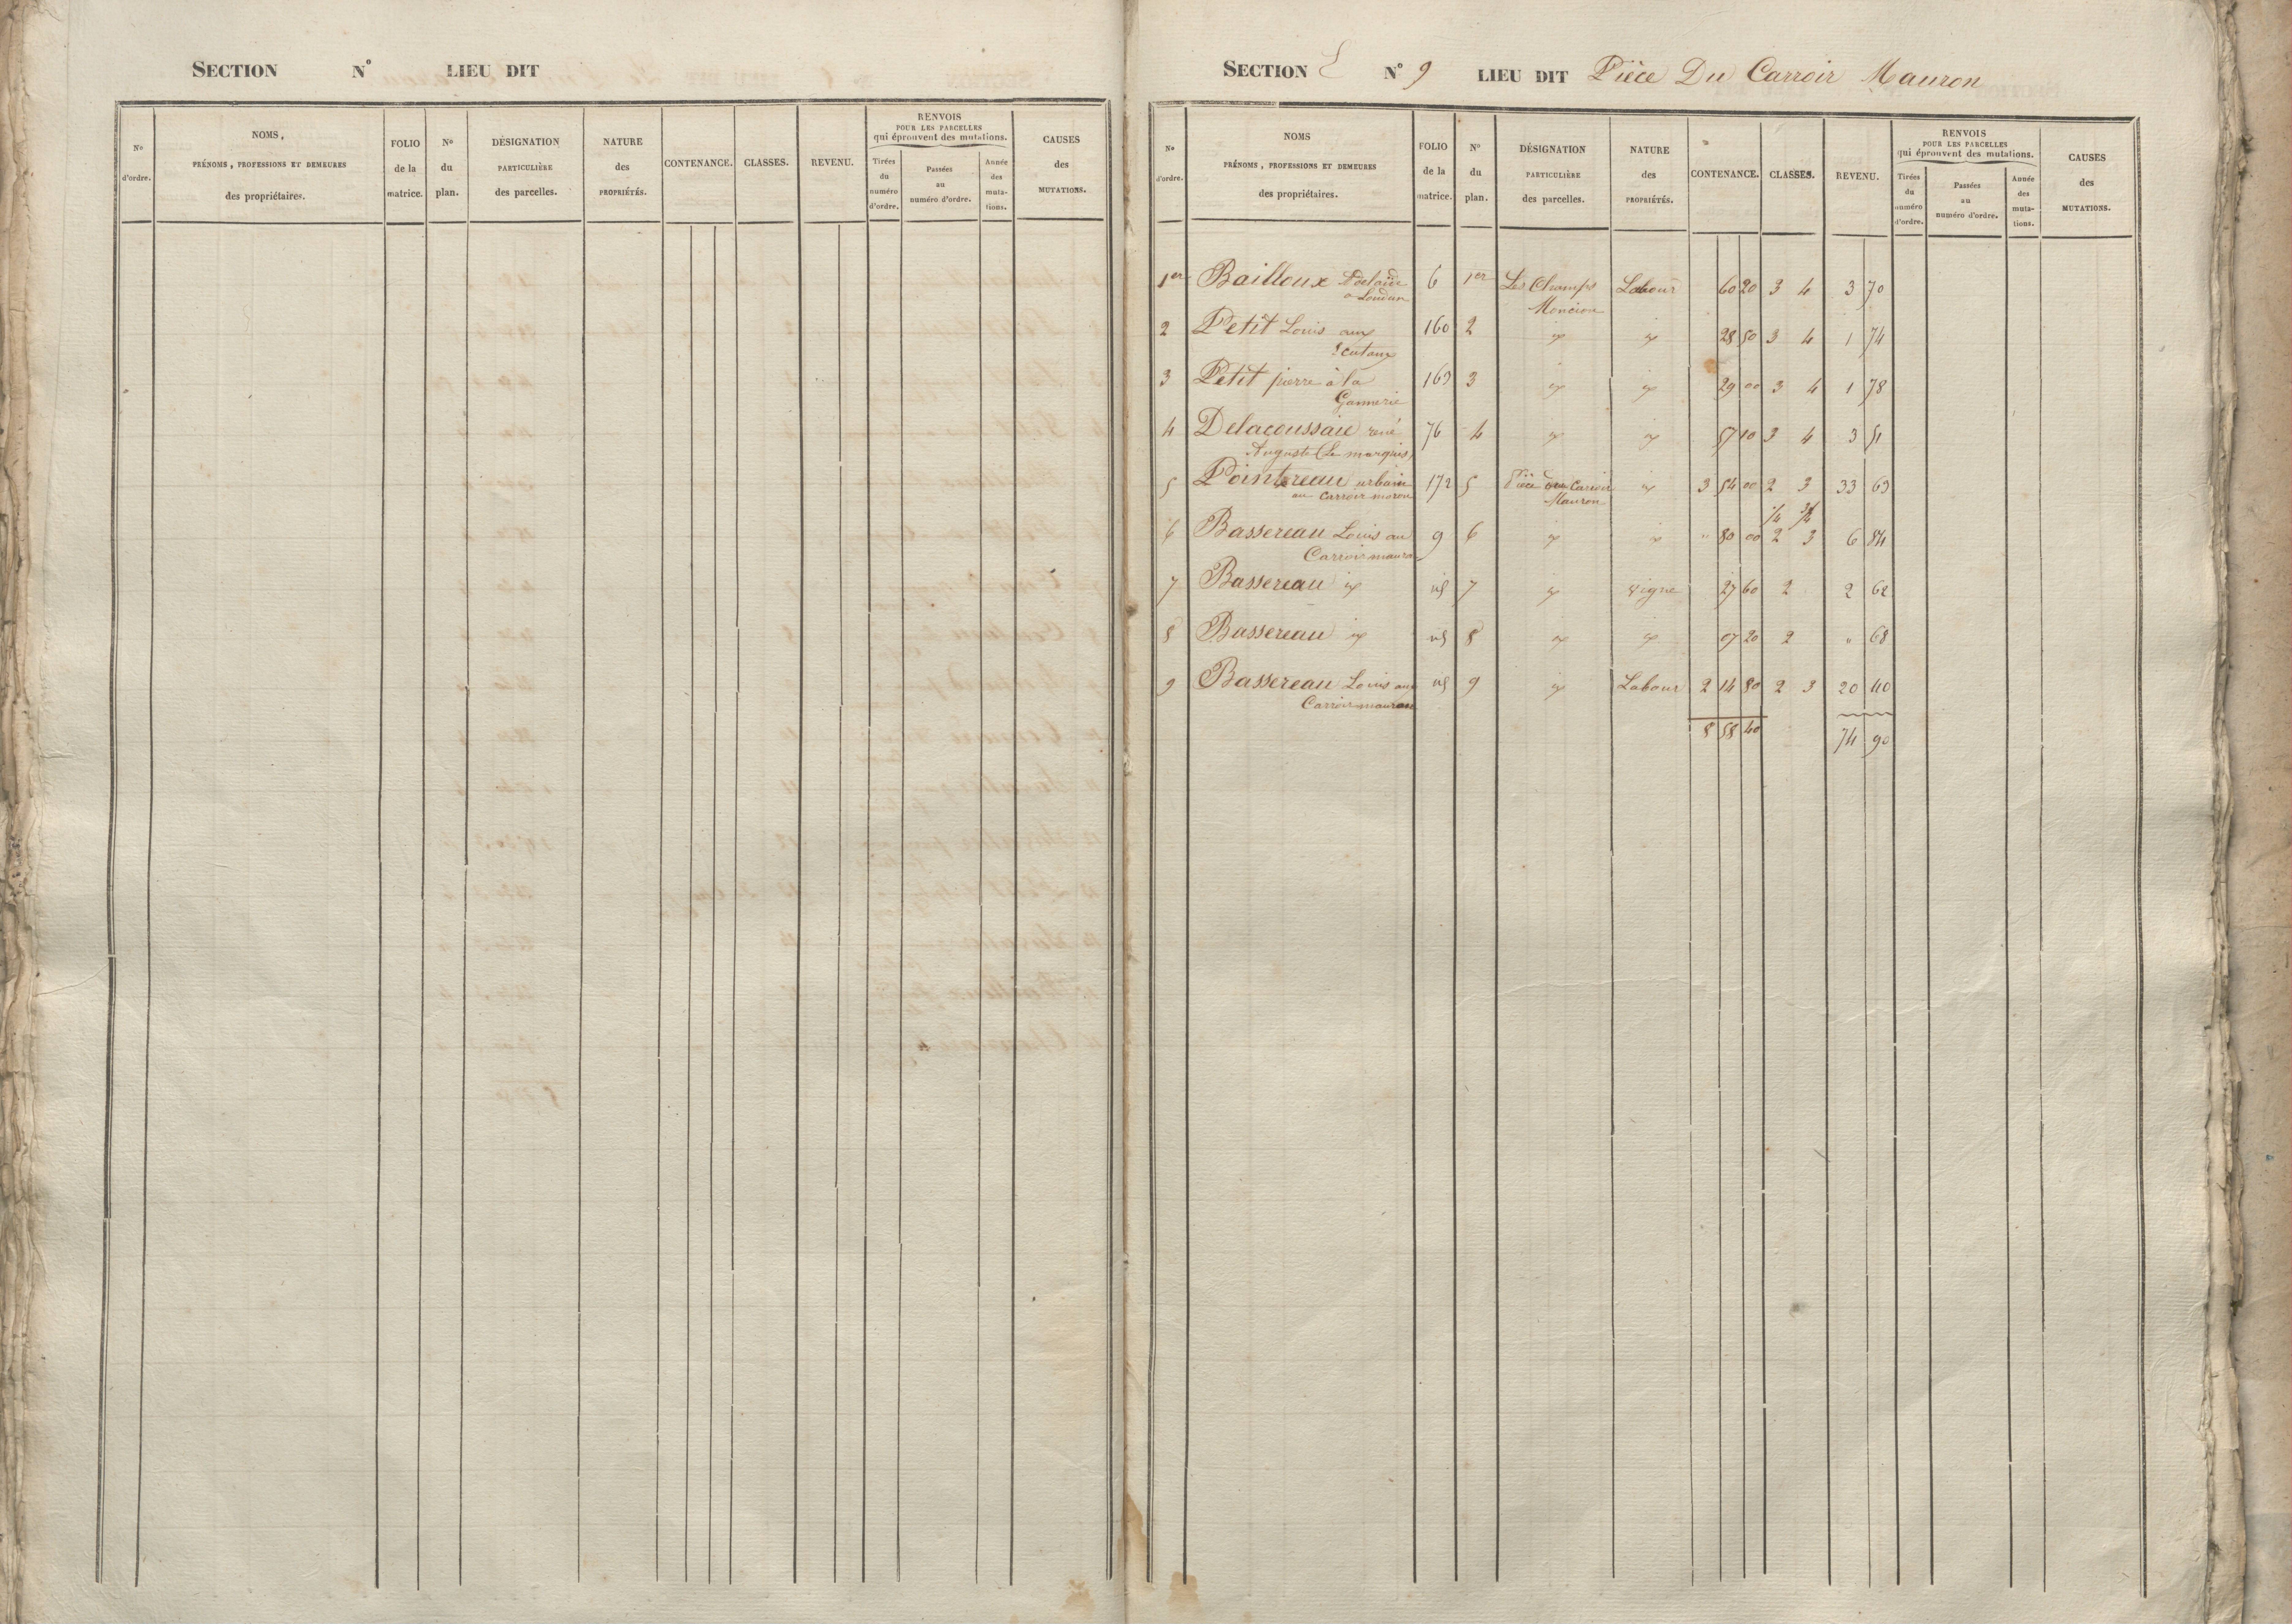 SECTION N° LIEU DIT
N° d'ordre.
NOMS, PRÉNOMS, PROFESSIONS ET DEMEURES des propriétaires.
FOLIO de la matrice.
N° du plan.
DÉSIGNATION PARTICULIÈRE des parcelles.
NATURE des PROPRIÉTÉS.
CONTENANCE.
CLASSES.
REVENU.
RENVOIS POUR LES PARCELLES qui éprouvent des mutations.
Tirées du numéro d'ordre.
Passées au numéro d'ordre.
Année des mutations.
CAUSES des MUTATIONS.
SECTION E N° 9 LIEU DIT Pièce Du Carroir Mauron
N° d'ordre.
NOMS PRÉNOMS, PROFESSIONS ET DEMEURES des propriétaires.
FOLIO de la matrice.
N° du plan.
DÉSIGNATION PARTICULIÈRE des parcelles.
NATURE des PROPRIÉTÉS.
CONTENANCE.
CLASSES.
REVENU.
RENVOIS POUR LES PARCELLES qui éprouvent des mutations.
Tirées du numéro d'ordre.
Passées au numéro d'ordre.
Année des mutations.
CAUSES des MUTATIONS.
1er Bailloux Adelaide 6 1er Les Champs Labour 60 20 3 4 3 70
a Loudun Moncion
2 Petit Louis aux 160 2 60 28 50 3 4 1 74
3 Petit pierre à la 163 3 29 00 3 4 1 78
Gannerie
4 Delacoussaie rené 76 4 57 10 3 4 3 51
Auguste (Le marquis)
5 Pointereau urbain 172 5 Pièce du Carroir 3 54 00 2 3 33 63
au Carroir moron Mauron
1/4 3/4
6 Bassereau Louis au 9 6 " 80 00 2 3 6 84
Carroir mauron
7 Bassereau 7 vigne 27 60 2 2 62
8 Bassereau 8 07 20 2 " 68
9 Bassereau Louis au 9 Labour 2 14 80 2 3 20 40
Carroir mauron
8 58 40 74 90